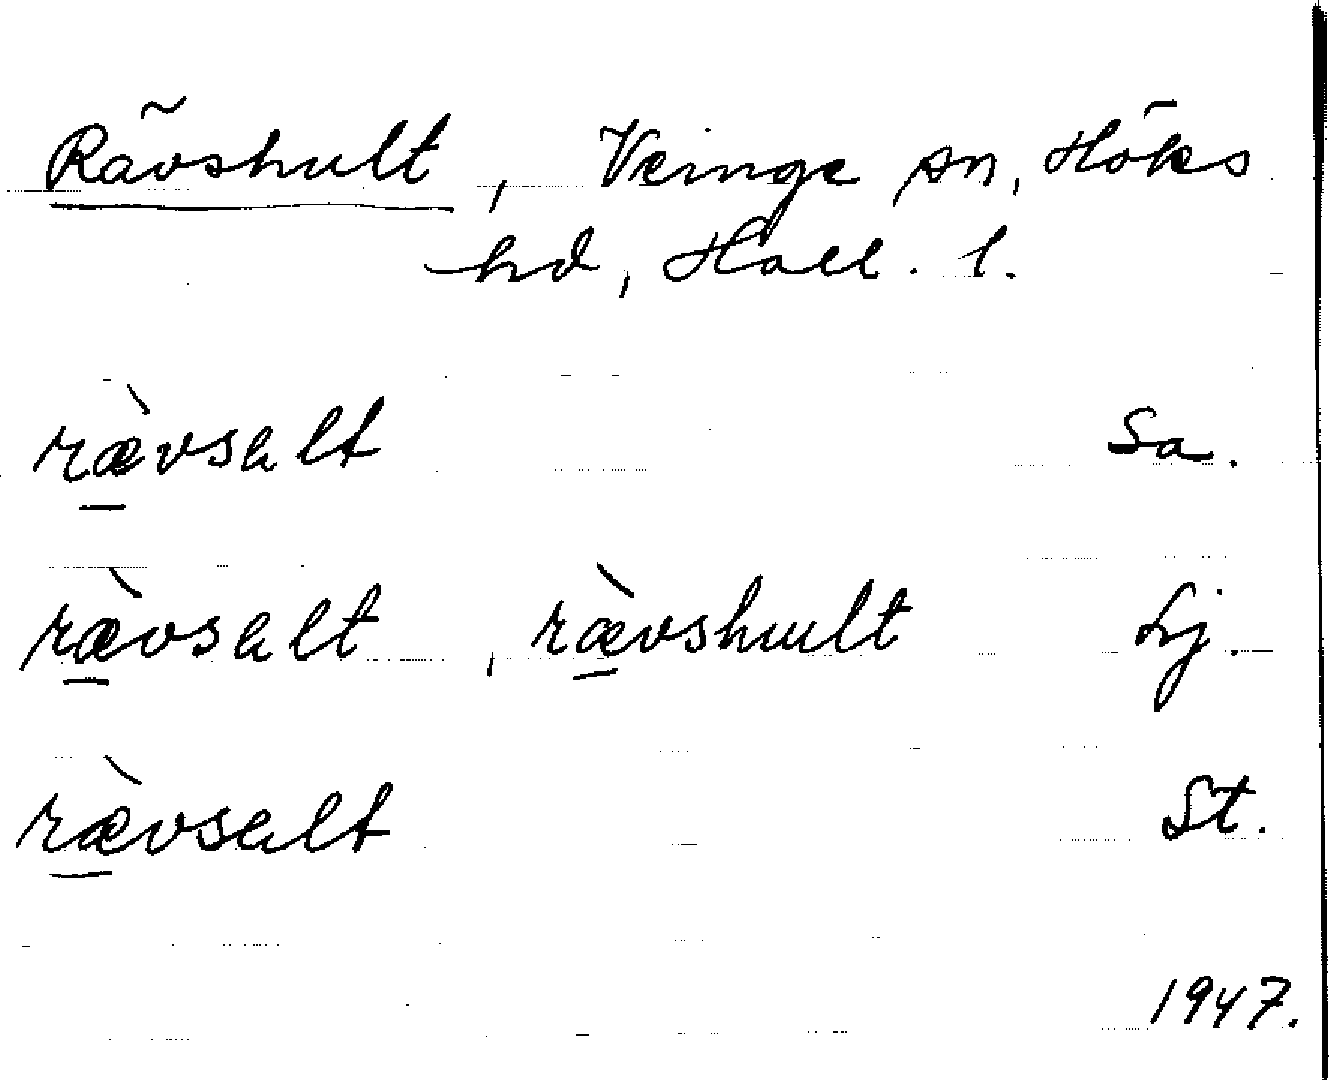 Rävshult, Veinge sn, Höks
hd, Hall. l.
ræ̱̀vsalt Sa.
ræ̱̀vsalt, ræ̱̀vshult Lj.
ræ̱̀vsalt St.
1947.